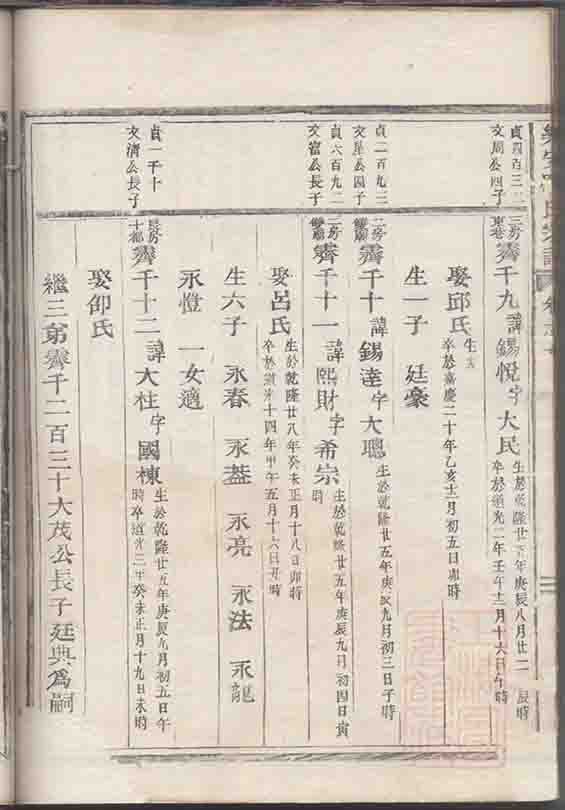 貞四百三
文周公四子
三房
東巷
霽千九 諱錫悅 字大民
生於乾隆廿五年庚辰八月廿二 辰時
卒於道光二年壬午十一月十六日午時
娶邱氏
生
卒於嘉慶二十年乙亥十一月初五日卯時
生一子 廷豪
貞二百九二
公四子
二房
霽千十 諱錫達 字大聰
生於乾隆廿五年庚辰九月初三日子時
貞六百九二
文富公長子
霽千十一 諱熙財 字希宗
生於乾隆廿五年庚辰九月初四日寅時
娶呂氏
生於乾隆廿八年癸未正月十八日卯時
卒於道光十四年甲午五月十六日丑時
生六子 永春 永益 永亮 永法 永龍
永愷 一女適
貞一千十
文清公長子
長房
十都
霽千十二 諱大柱 字國棟
生於乾隆廿五年庚辰九月初五日午時
卒道光三年癸未正月十九日未時
娶仰氏
繼三弟霽千二百三十大茂公長子廷典為嗣